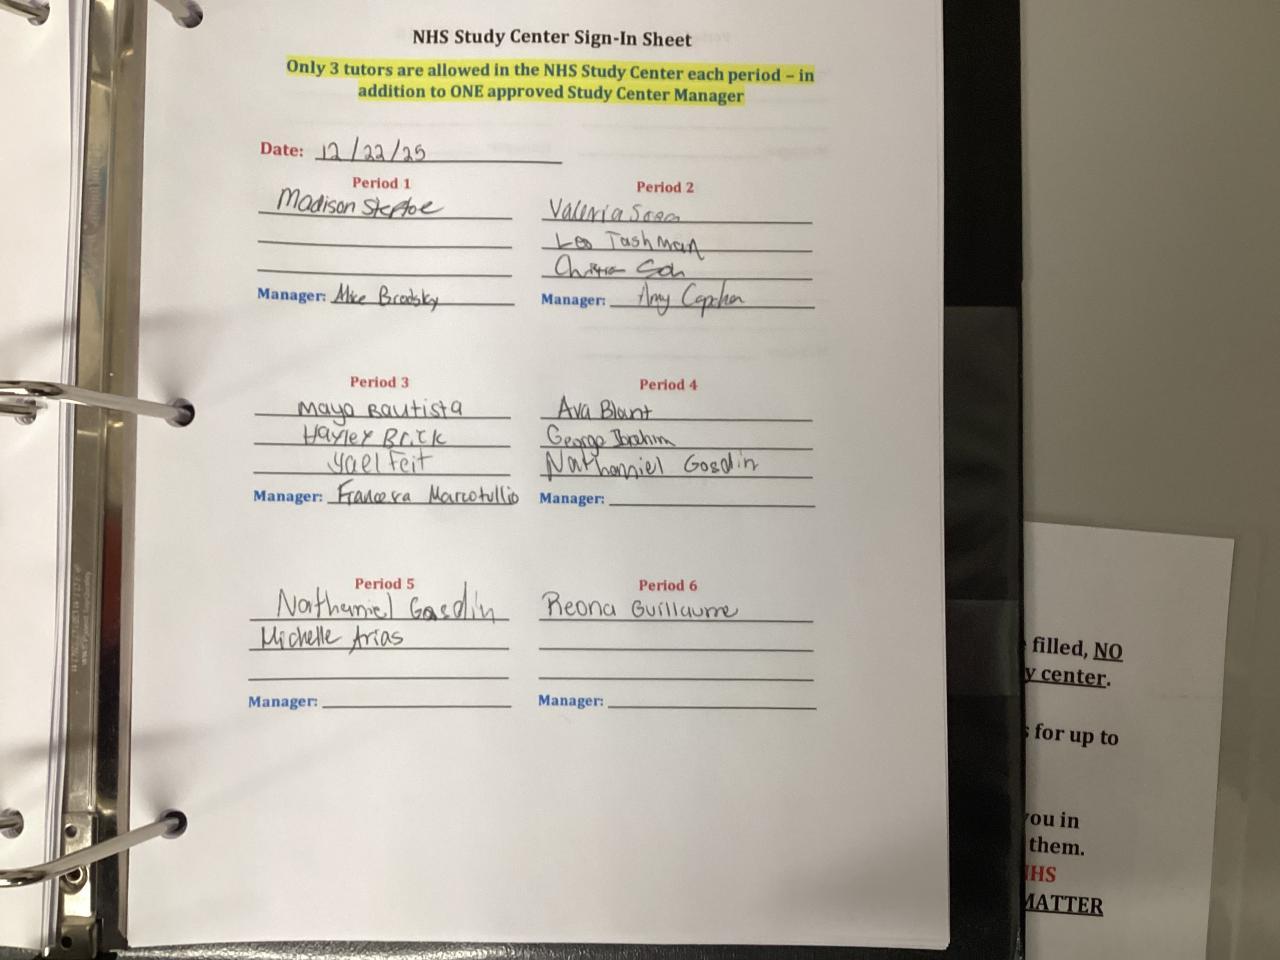 NHS Study Center Sign-In Sheet
Only 3 tutors are allowed in the NHS Study Center each period – in
addition to ONE approved Study Center Manager
Date: 12/22/25
Period 1
Madison Steptoe
Manager: Mike Brodsky
Period 2
Valeria
Leo Tashman
Manager: Amy
Period 3
Maya Bautista
Hayley Brick
Yael Feit
Manager: Francesca Marcotullio
Period 4
Ava Blunt
George Ibrahim
Nathanniel Gosdin
Manager:
Period 5
Nathanniel Gosdin
Michelle Arias
Manager:
Period 6
Reona Guillaume
Manager:
filled, NO
y center.
for up to
ou in
them.
HS
MATTER